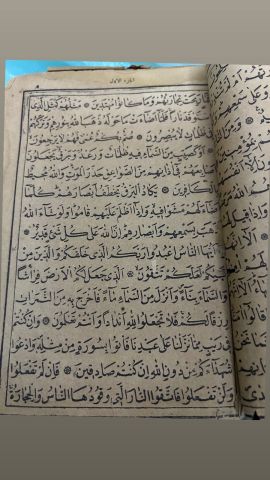 الجزء الاول
فَمَا رَبِحَتْ تِجَارَتُهُمْ وَمَا كَانُوا مُهْتَدِينَ ۞ مَثَلُهُمْ كَمَثَلِ الَّذِي
اسْتَوْقَدَ نَارًا فَلَمَّا أَضَاءَتْ مَا حَوْلَهُ ذَهَبَ اللهُ بِنُورِهِمْ وَتَرَكَهُمْ
فِي ظُلُمَاتٍ لَا يُبْصِرُونَ ۞ صُمٌّ بُكْمٌ عُمْيٌ فَهُمْ لَا يَرْجِعُونَ
أَوْ كَصَيِّبٍ مِنَ السَّمَاءِ فِيهِ ظُلُمَاتٌ وَرَعْدٌ وَبَرْقٌ يَجْعَلُونَ
أَصَابِعَهُمْ فِي آذَانِهِمْ مِنَ الصَّوَاعِقِ حَذَرَ الْمَوْتِ وَاللهُ مُحِيطٌ
بِالْكَافِرِينَ ۞ يَكَادُ الْبَرْقُ يَخْطَفُ أَبْصَارَهُمْ كُلَّمَا
أَضَاءَ لَهُمْ مَشَوْا فِيهِ وَإِذَا أَظْلَمَ عَلَيْهِمْ قَامُوا وَلَوْ شَاءَ اللهُ
لَذَهَبَ بِسَمْعِهِمْ وَأَبْصَارِهِمْ إِنَّ اللهَ عَلَى كُلِّ شَيْءٍ قَدِيرٌ
يَا أَيُّهَا النَّاسُ اعْبُدُوا رَبَّكُمُ الَّذِي خَلَقَكُمْ وَالَّذِينَ مِنْ
قَبْلِكُمْ لَعَلَّكُمْ تَتَّقُونَ ۞ الَّذِي جَعَلَ لَكُمُ الْأَرْضَ فِرَاشًا
وَالسَّمَاءَ بِنَاءً وَأَنْزَلَ مِنَ السَّمَاءِ مَاءً فَأَخْرَجَ بِهِ مِنَ الثَّمَرَاتِ
رِزْقًا لَكُمْ فَلَا تَجْعَلُوا لِلهِ أَنْدَادًا وَأَنْتُمْ تَعْلَمُونَ ۞ وَإِنْ كُنْتُمْ
فِي رَيْبٍ مِمَّا نَزَّلْنَا عَلَى عَبْدِنَا فَأْتُوا بِسُورَةٍ مِنْ مِثْلِهِ وَادْعُوا
شُهَدَاءَكُمْ مِنْ دُونِ اللهِ إِنْ كُنْتُمْ صَادِقِينَ ۞ فَإِنْ لَمْ تَفْعَلُوا
وَلَنْ تَفْعَلُوا فَاتَّقُوا النَّارَ الَّتِي وَقُودُهَا النَّاسُ وَالْحِجَارَةُ